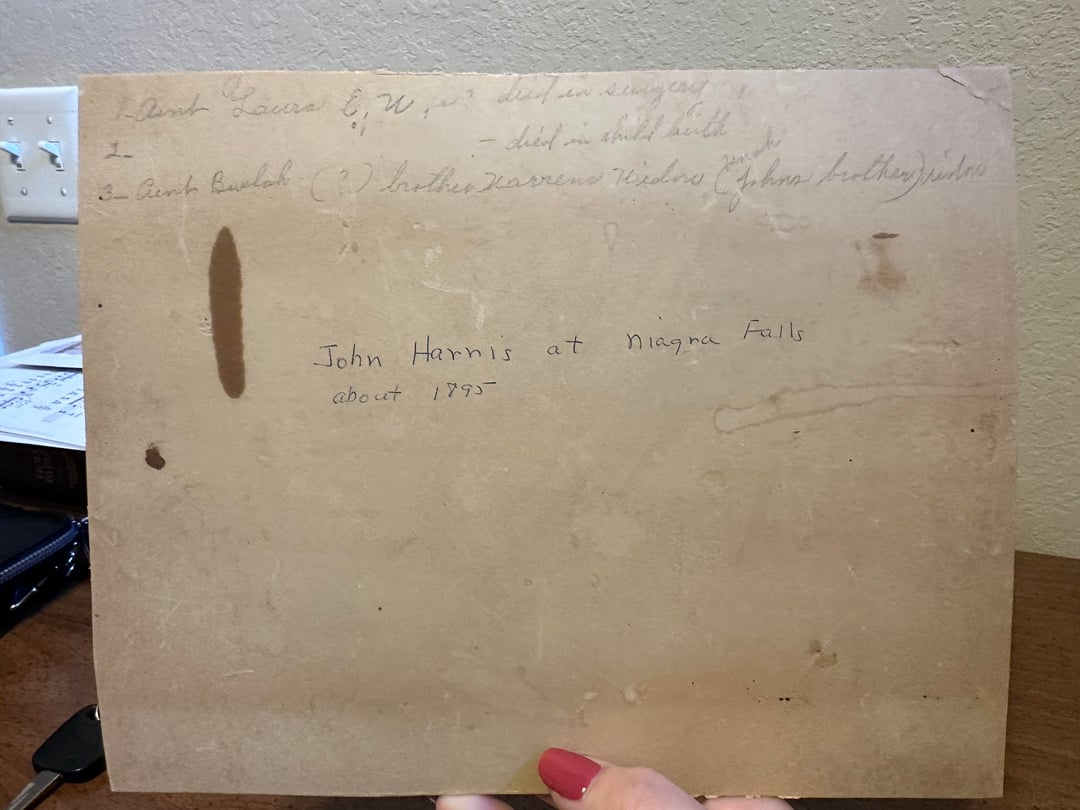 1- Aunt Laura E, W, a? died in surgery
2- - died in child birth
3- Aunt Buelah (?) brother Warrens Widow (Johns brother)
John Harris at Niagra Falls
about 1895